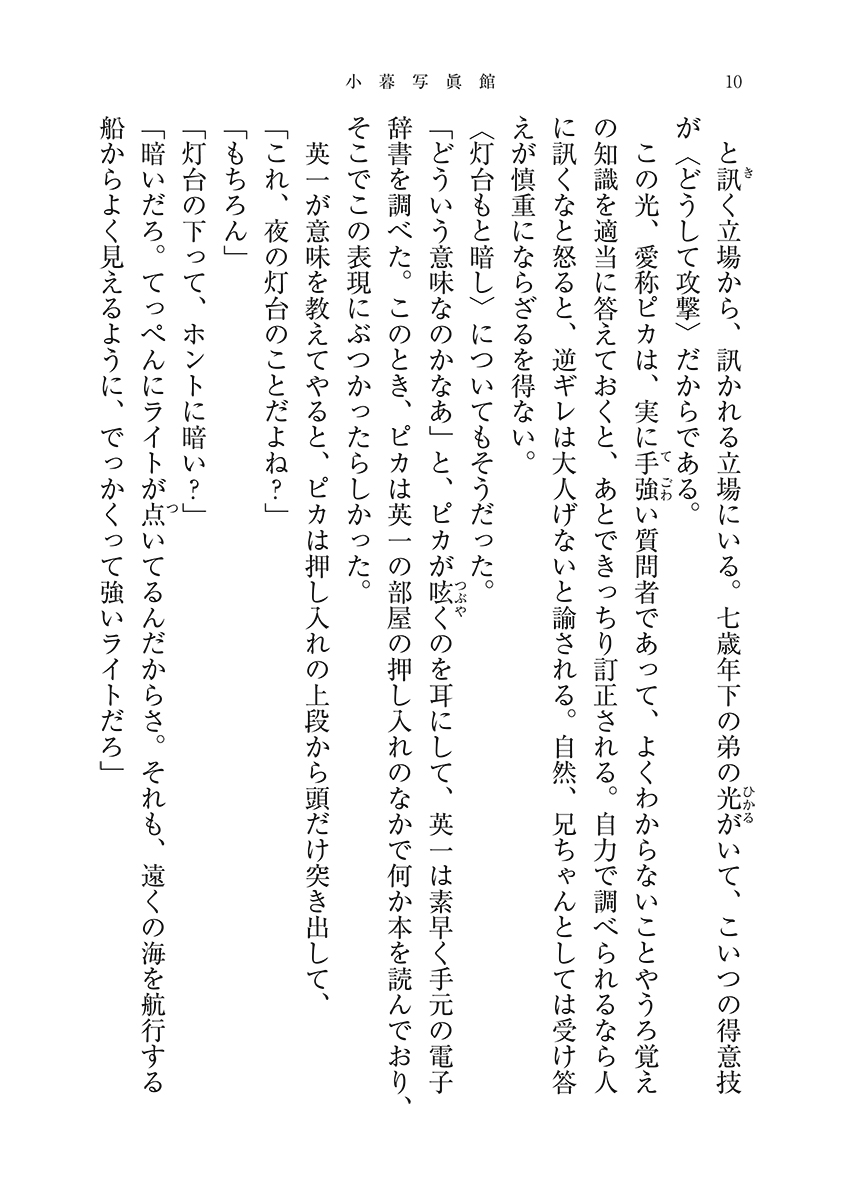 小暮写眞館
10
と訊く立場から、訊かれる立場にいる。七歳年下の弟の光がいて、こいつの得意技
が〈どうして攻撃〉だからである。
この光、愛称ピカは、実に手強い質問者であって、よくわからないことやうろ覚え
の知識を適当に答えておくと、あとできっちり訂正される。自力で調べられるなら人
に訊くなと怒ると、逆ギレは大人げないと諭される。自然、兄ちゃんとしては受け答
えが慎重にならざるを得ない。
〈灯台もと暗し〉についてもそうだった。
「どういう意味なのかなあ」と、ピカが呟くのを耳にして、英一は素早く手元の電子
辞書を調べた。このとき、ピカは英一の部屋の押し入れのなかで何か本を読んでおり、
そこでこの表現にぶつかったらしかった。
英一が意味を教えてやると、ピカは押し入れの上段から頭だけ突き出して、
「これ、夜の灯台のことだよね?」
「もちろん」
「灯台の下って、ホントに暗い?」
「暗いだろ。てっぺんにライトが点いてるんだからさ。それも、遠くの海を航行する
船からよく見えるように、でっかくって強いライトだろ」